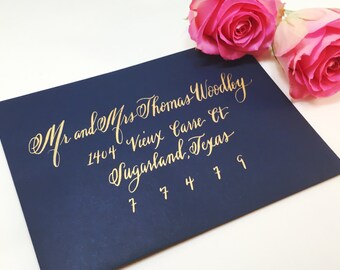 Mr and Mrs Thomas Woodley
1404 Vieux Carre Ct
Sugarland, Texas
77479